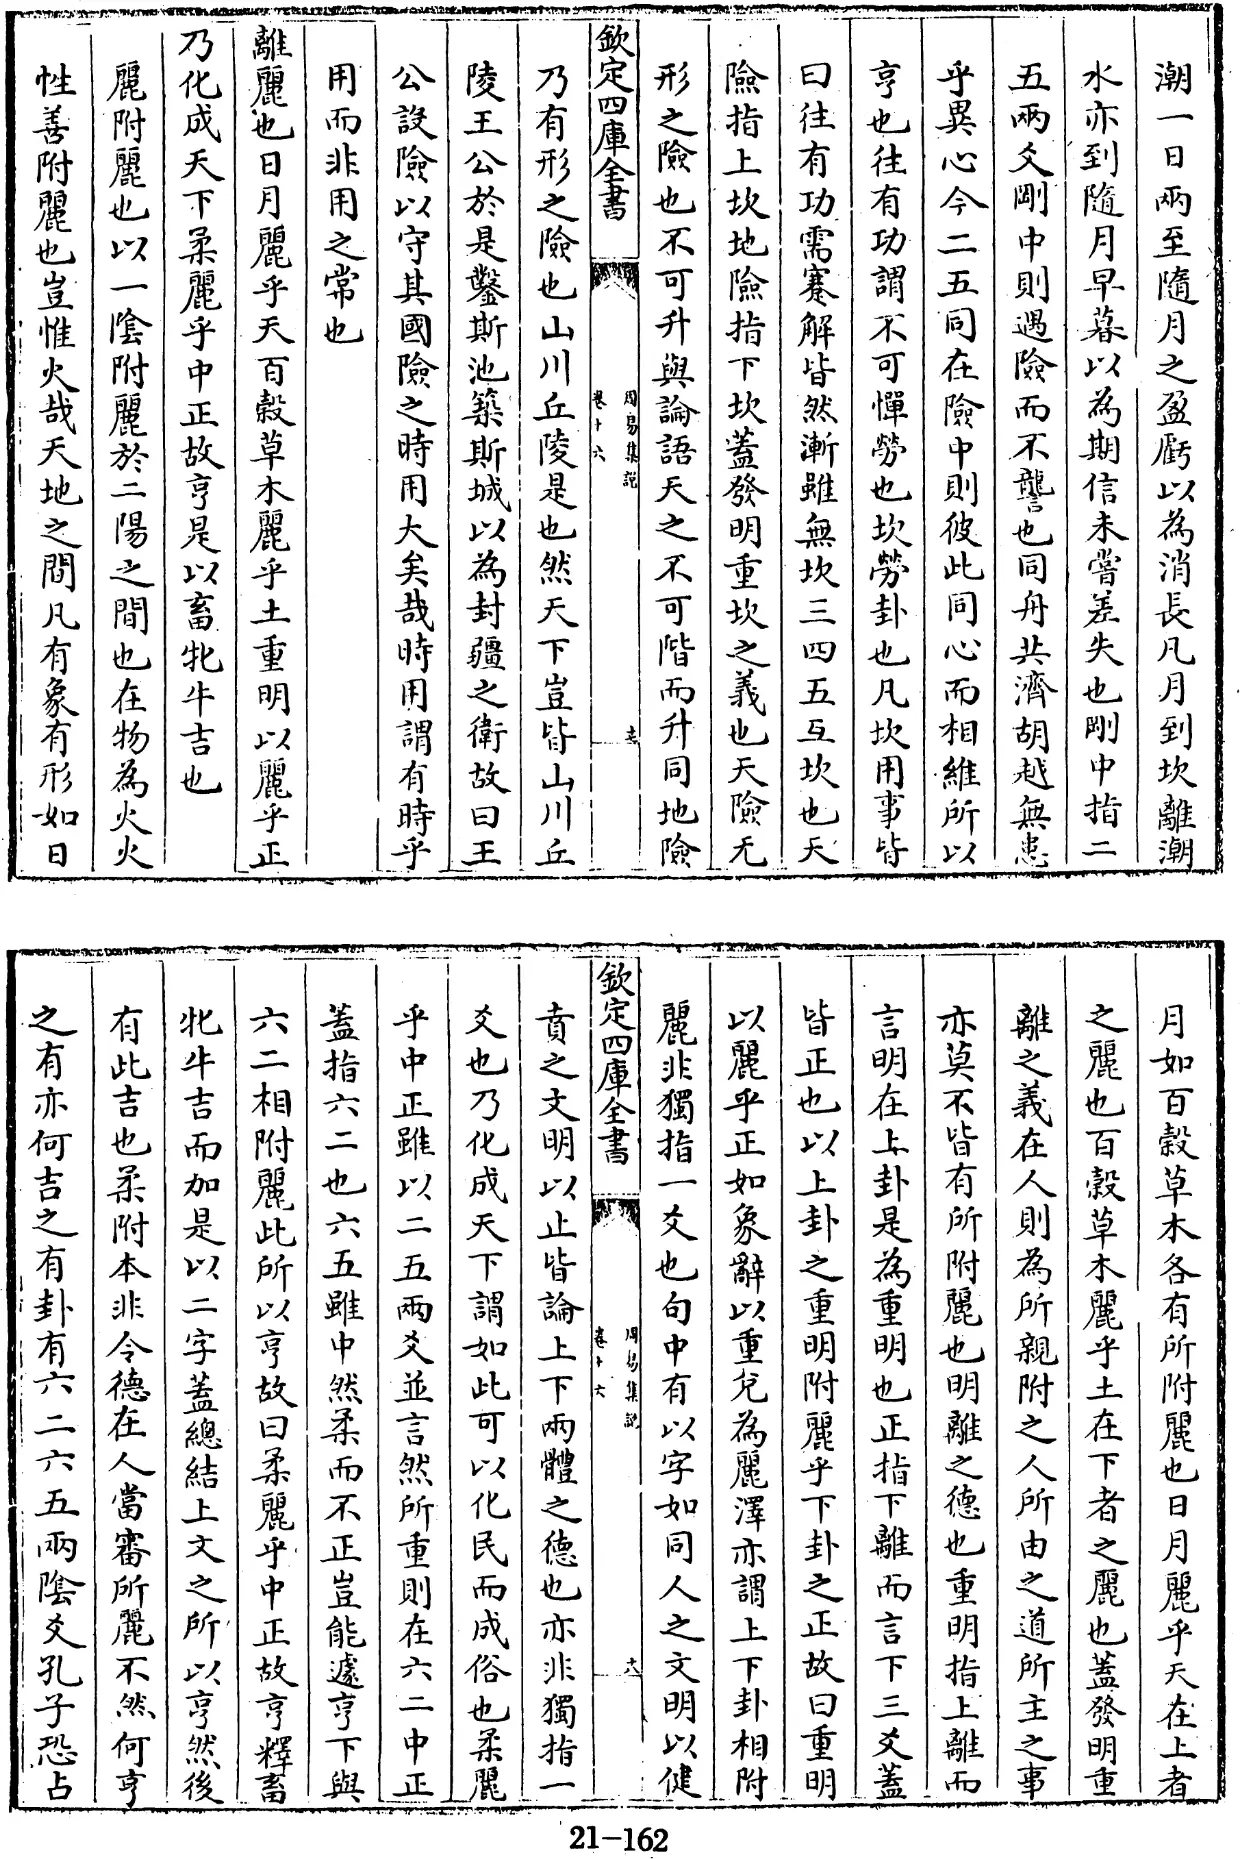 潮一日兩至隨月之盈虧以為消長凡月到坎離潮
水亦到隨月早暮以為期信未嘗差失也剛中指二
五兩爻剛中則遇險而不讋也同舟共濟胡越無患
乎異心今二五同在險中則彼此同心而相維所以
亨也往有功謂不可憚勞也坎勞卦也凡坎用事皆
曰往有功需蹇解皆然漸雖無坎三四五互坎也天
險指上坎地險指下坎蓋發明重坎之義也天險无
形之險也不可升與論語天之不可階而升同地險
欽定四庫全書
周易集說
卷十六
乃有形之險也山川丘陵是也然天下豈皆山川丘
陵王公於是鑿斯池築斯城以為封疆之衛故曰王
公設險以守其國險之時用大矣哉時用謂有時乎
用而非用之常也
離麗也日月麗乎天百穀草木麗乎土重明以麗乎正
乃化成天下柔麗乎中正故亨是以畜牝牛吉也
麗附麗也以一陰附麗於二陽之間也在物為火火
性善附麗也豈惟火哉天地之間凡有象有形如日
月如百穀草木各有所附麗也日月麗乎天在上者
之麗也百穀草木麗乎土在下者之麗也蓋發明重
離之義在人則為所親附之人所由之道所主之事
亦莫不皆有所附麗也明離之德也重明指上離而
言明在上卦是為重明也正指下離而言下三爻蓋
皆正也以上卦之重明附麗乎下卦之正故曰重明
以麗乎正如象辭以重兌為麗澤亦謂上下卦相附
麗非獨指一爻也句中有以字如同人之文明以健
欽定四庫全書
周易集說
卷十六
十八
賁之文明以止皆論上下兩體之德也亦非獨指一
爻也乃化成天下謂如此可以化民而成俗也柔麗
乎中正雖以二五兩爻並言然所重則在六二中正
蓋指六二也六五雖中然柔而不正豈能遽亨下與
六二相附麗此所以亨故曰柔麗乎中正故亨釋畜
牝牛吉而加是以二字蓋總結上文之所以亨然後
有此吉也柔附本非令德在人當審所麗不然何亨
之有亦何吉之有卦有六二六五兩陰爻孔子恐占
21-162